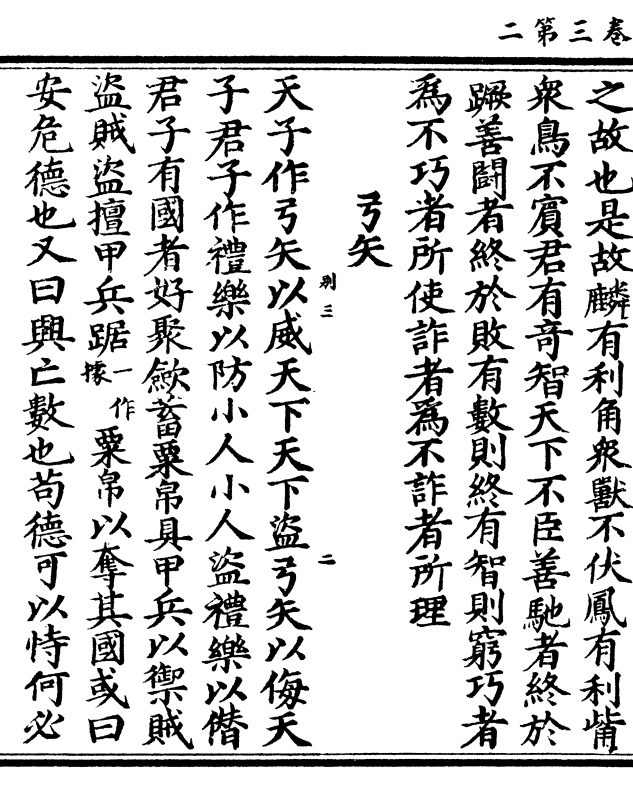 卷三第二
之故也是故麟有利角衆獸不伏鳳有利觜
衆鳥不賓君有奇智天下不臣善馳者終於
蹶善鬪者終於敗有數則終有智則窮巧者
爲不巧者所使詐者爲不詐者所理
弓矢
别三
天子作弓矢以威天下天下盜弓矢以侮天
二
子君子作禮樂以防小人小人盜禮樂以僭
君子有國者好聚歛蓄粟帛具甲兵以禦賊
盜賊盜擅甲兵踞一作據粟帛以奪其國或曰
安危德也又曰興亡數也苟德可以恃何必